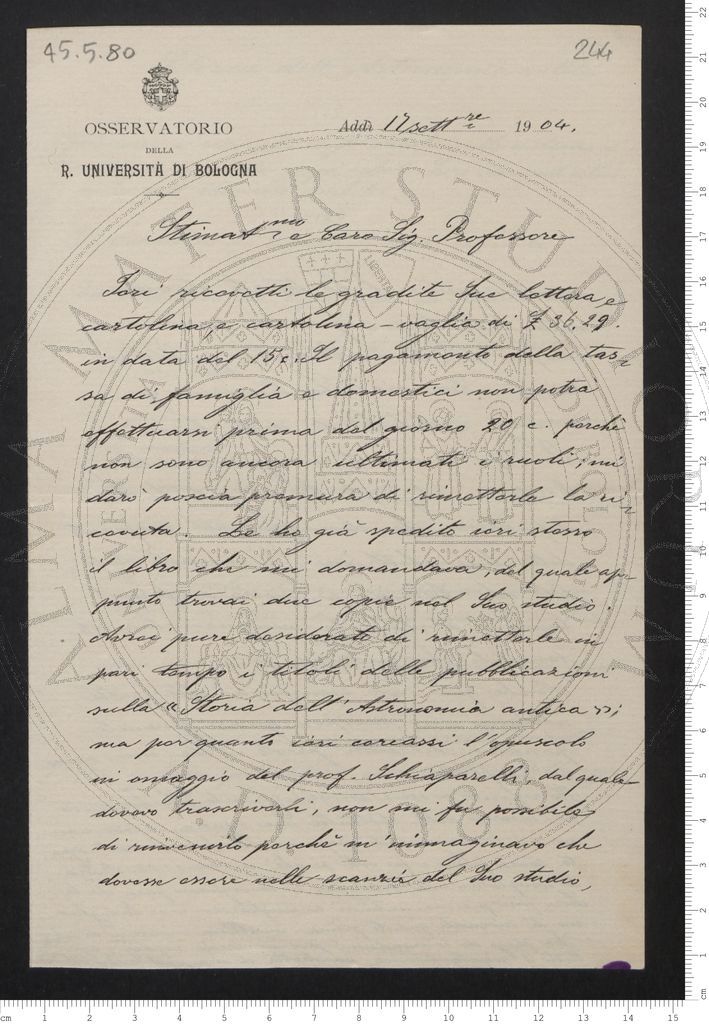 45.5.80
244
OSSERVATORIO
DELLA
R. UNIVERSITÀ DI BOLOGNA
Addì 17 sett.re 1904.
Stimat.mo e Caro Sig. Professore
Ieri ricevetti le gradite Sue lettera e
cartolina, e cartolina-vaglia di £ 36,29.
in data del 15 c. Il pagamento della tas-
sa di famiglia e domestici non potrà
effettuarsi prima del giorno 20 c. perchè
non sono ancora ultimati i ruoli; mi
darò poscia premura di rimetterle la ri-
cevuta. Le ho già spedito ieri stesso
il libro che mi domandava, del quale ap-
punto trovai due copie nel Suo studio.
Avrei pure desiderato di rimetterle in
pari tempo i titoli delle pubblicazioni
sulla «Storia dell'Astronomia antica»;
ma per quanto ieri cercassi l'opuscolo
in omaggio del prof. Schiaparelli, dal quale
dovevo trascriverli, non mi fu possibile
di rinvenirlo perchè m'immaginavo che
dovesse essere nelle scanzie del Suo studio,
ALMA MATER STUDIORUM
A.D. 1088
LIBERTAS